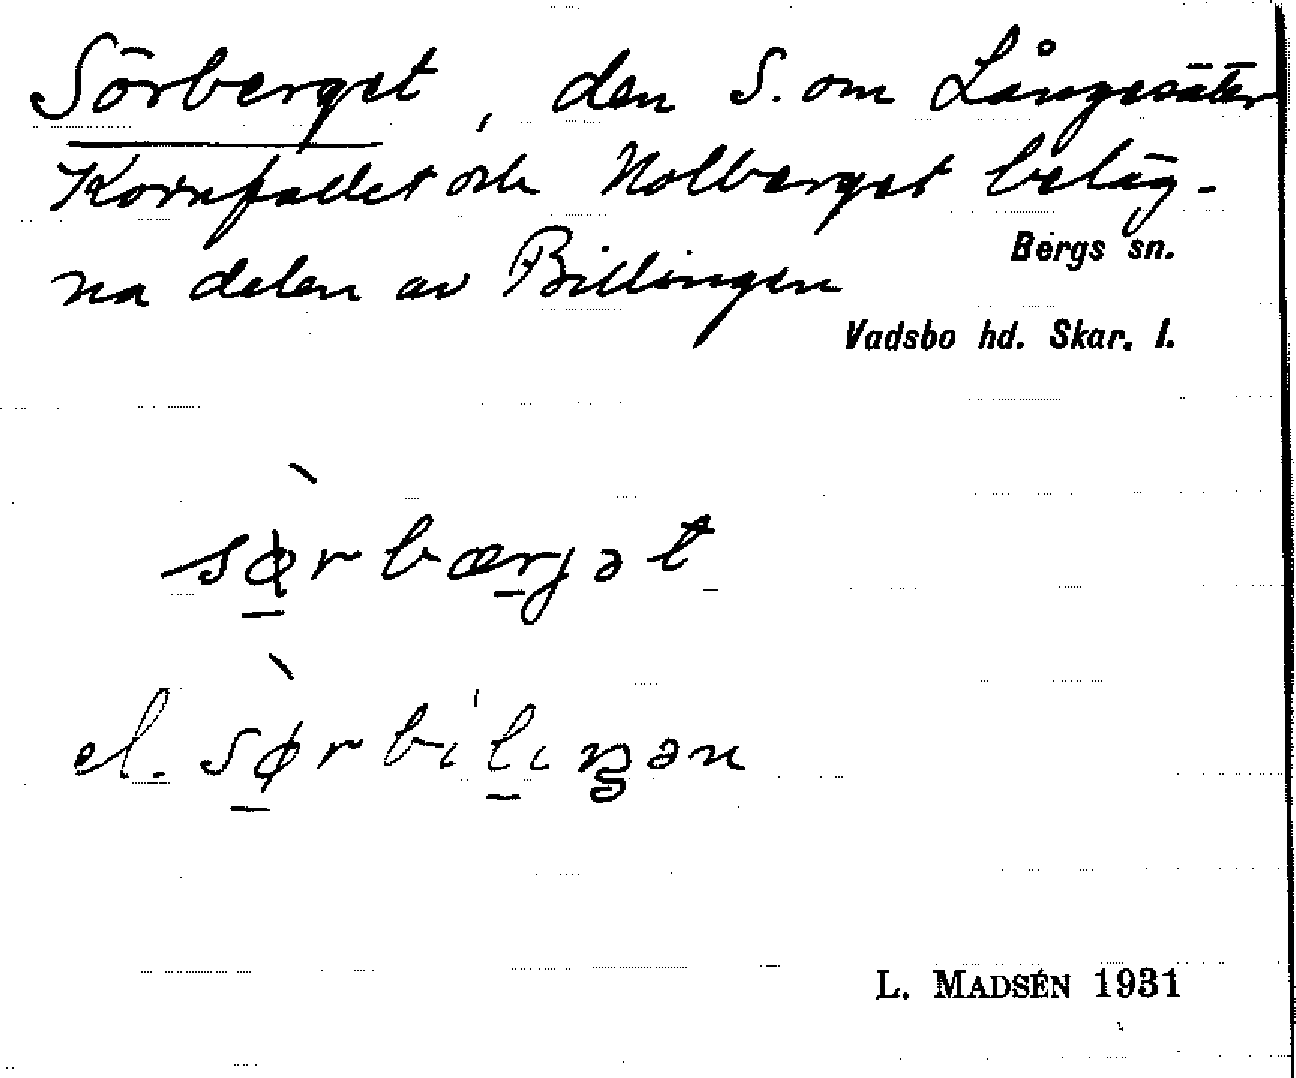 Sörberget, den S. om Långesäter
Kornfallet och Nolberget beläg-
na delen av Billingen
Bergs sn.
Vadsbo hd. Skar. l.
sø̀rbærjət
el. sø̀rbilıŋən
L. MADSÉN 1931